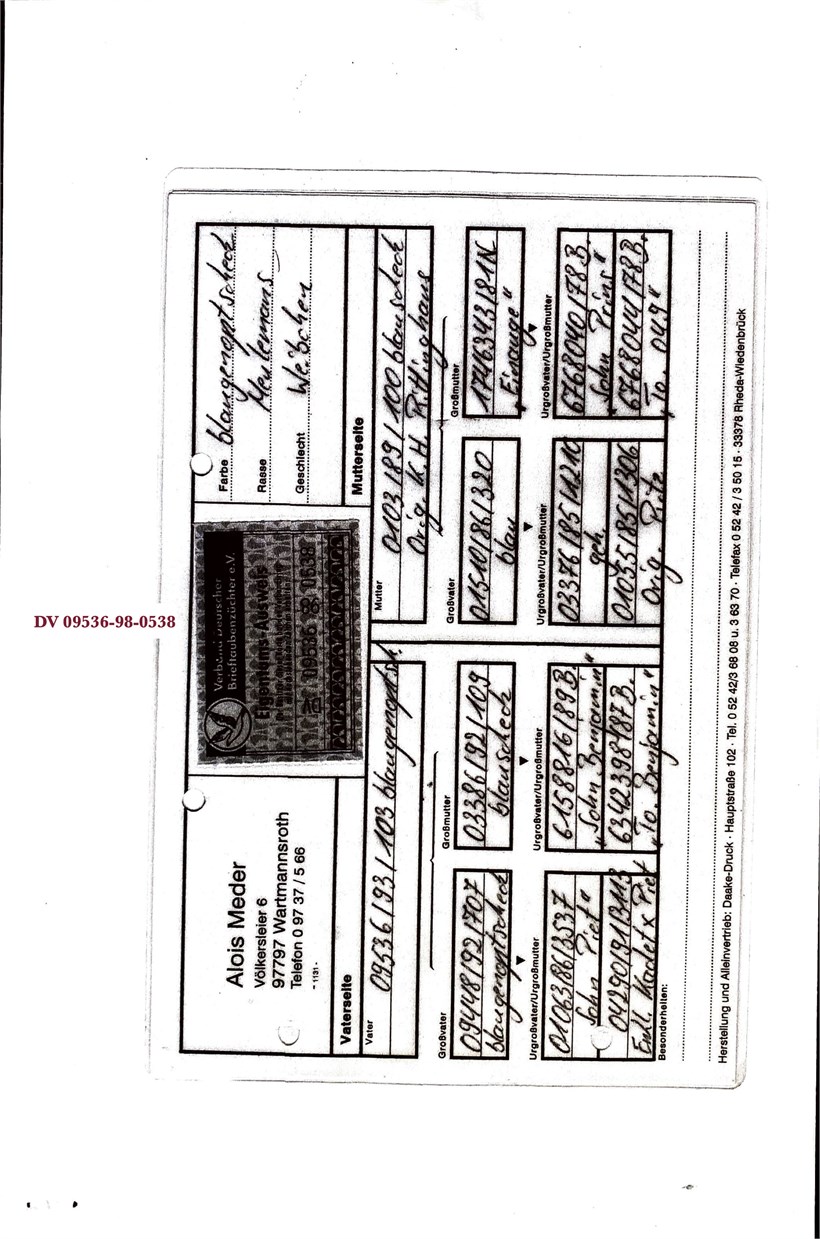 DV 09536-98-0538
Alois Meder
Völkersleier 6
97797 Wartmannsroth
Telefon 0 97 37 / 5 66
- 1131 -
Verband Deutscher
Brieftaubenzüchter e.V.
Eigentums-Ausweis
09536 98 0538
Farbe blaugenagtscheck
Rasse Meulemans
Geschlecht Weibchen
Vaterseite
Vater 09536/93/103
Großvater
09448/92/707
Großmutter
03386/92/109
blauscheck
Urgroßvater/Urgroßmutter
01063/86/3537
Sohn Piet"
04290/91/3113
Urgroßvater/Urgroßmutter
6158816/89 B.
"Sohn Benjamin"
6342398/87 B.
"To. Benjamin"
Mutterseite
Mutter 0103/89/100 blauscheck
Orig. K. H. Rittinghaus
Großvater
01510/86/320
blau
Großmutter
1746343/81 N
"Einauge"
Urgroßvater/Urgroßmutter
03376/85/1210
geh.
01035/85/1306
Orig.
Urgroßvater/Urgroßmutter
6768040/78 B
"Sohn Prins"
6768044/78 B.
"To. 049"
Besonderheiten:
Herstellung und Alleinvertrieb: Daake-Druck · Hauptstraße 102 · Tel. 0 52 42/3 68 08 u. 3 63 70 · Telefax 0 52 42 / 3 50 15 · 33378 Rheda-Wiedenbrück